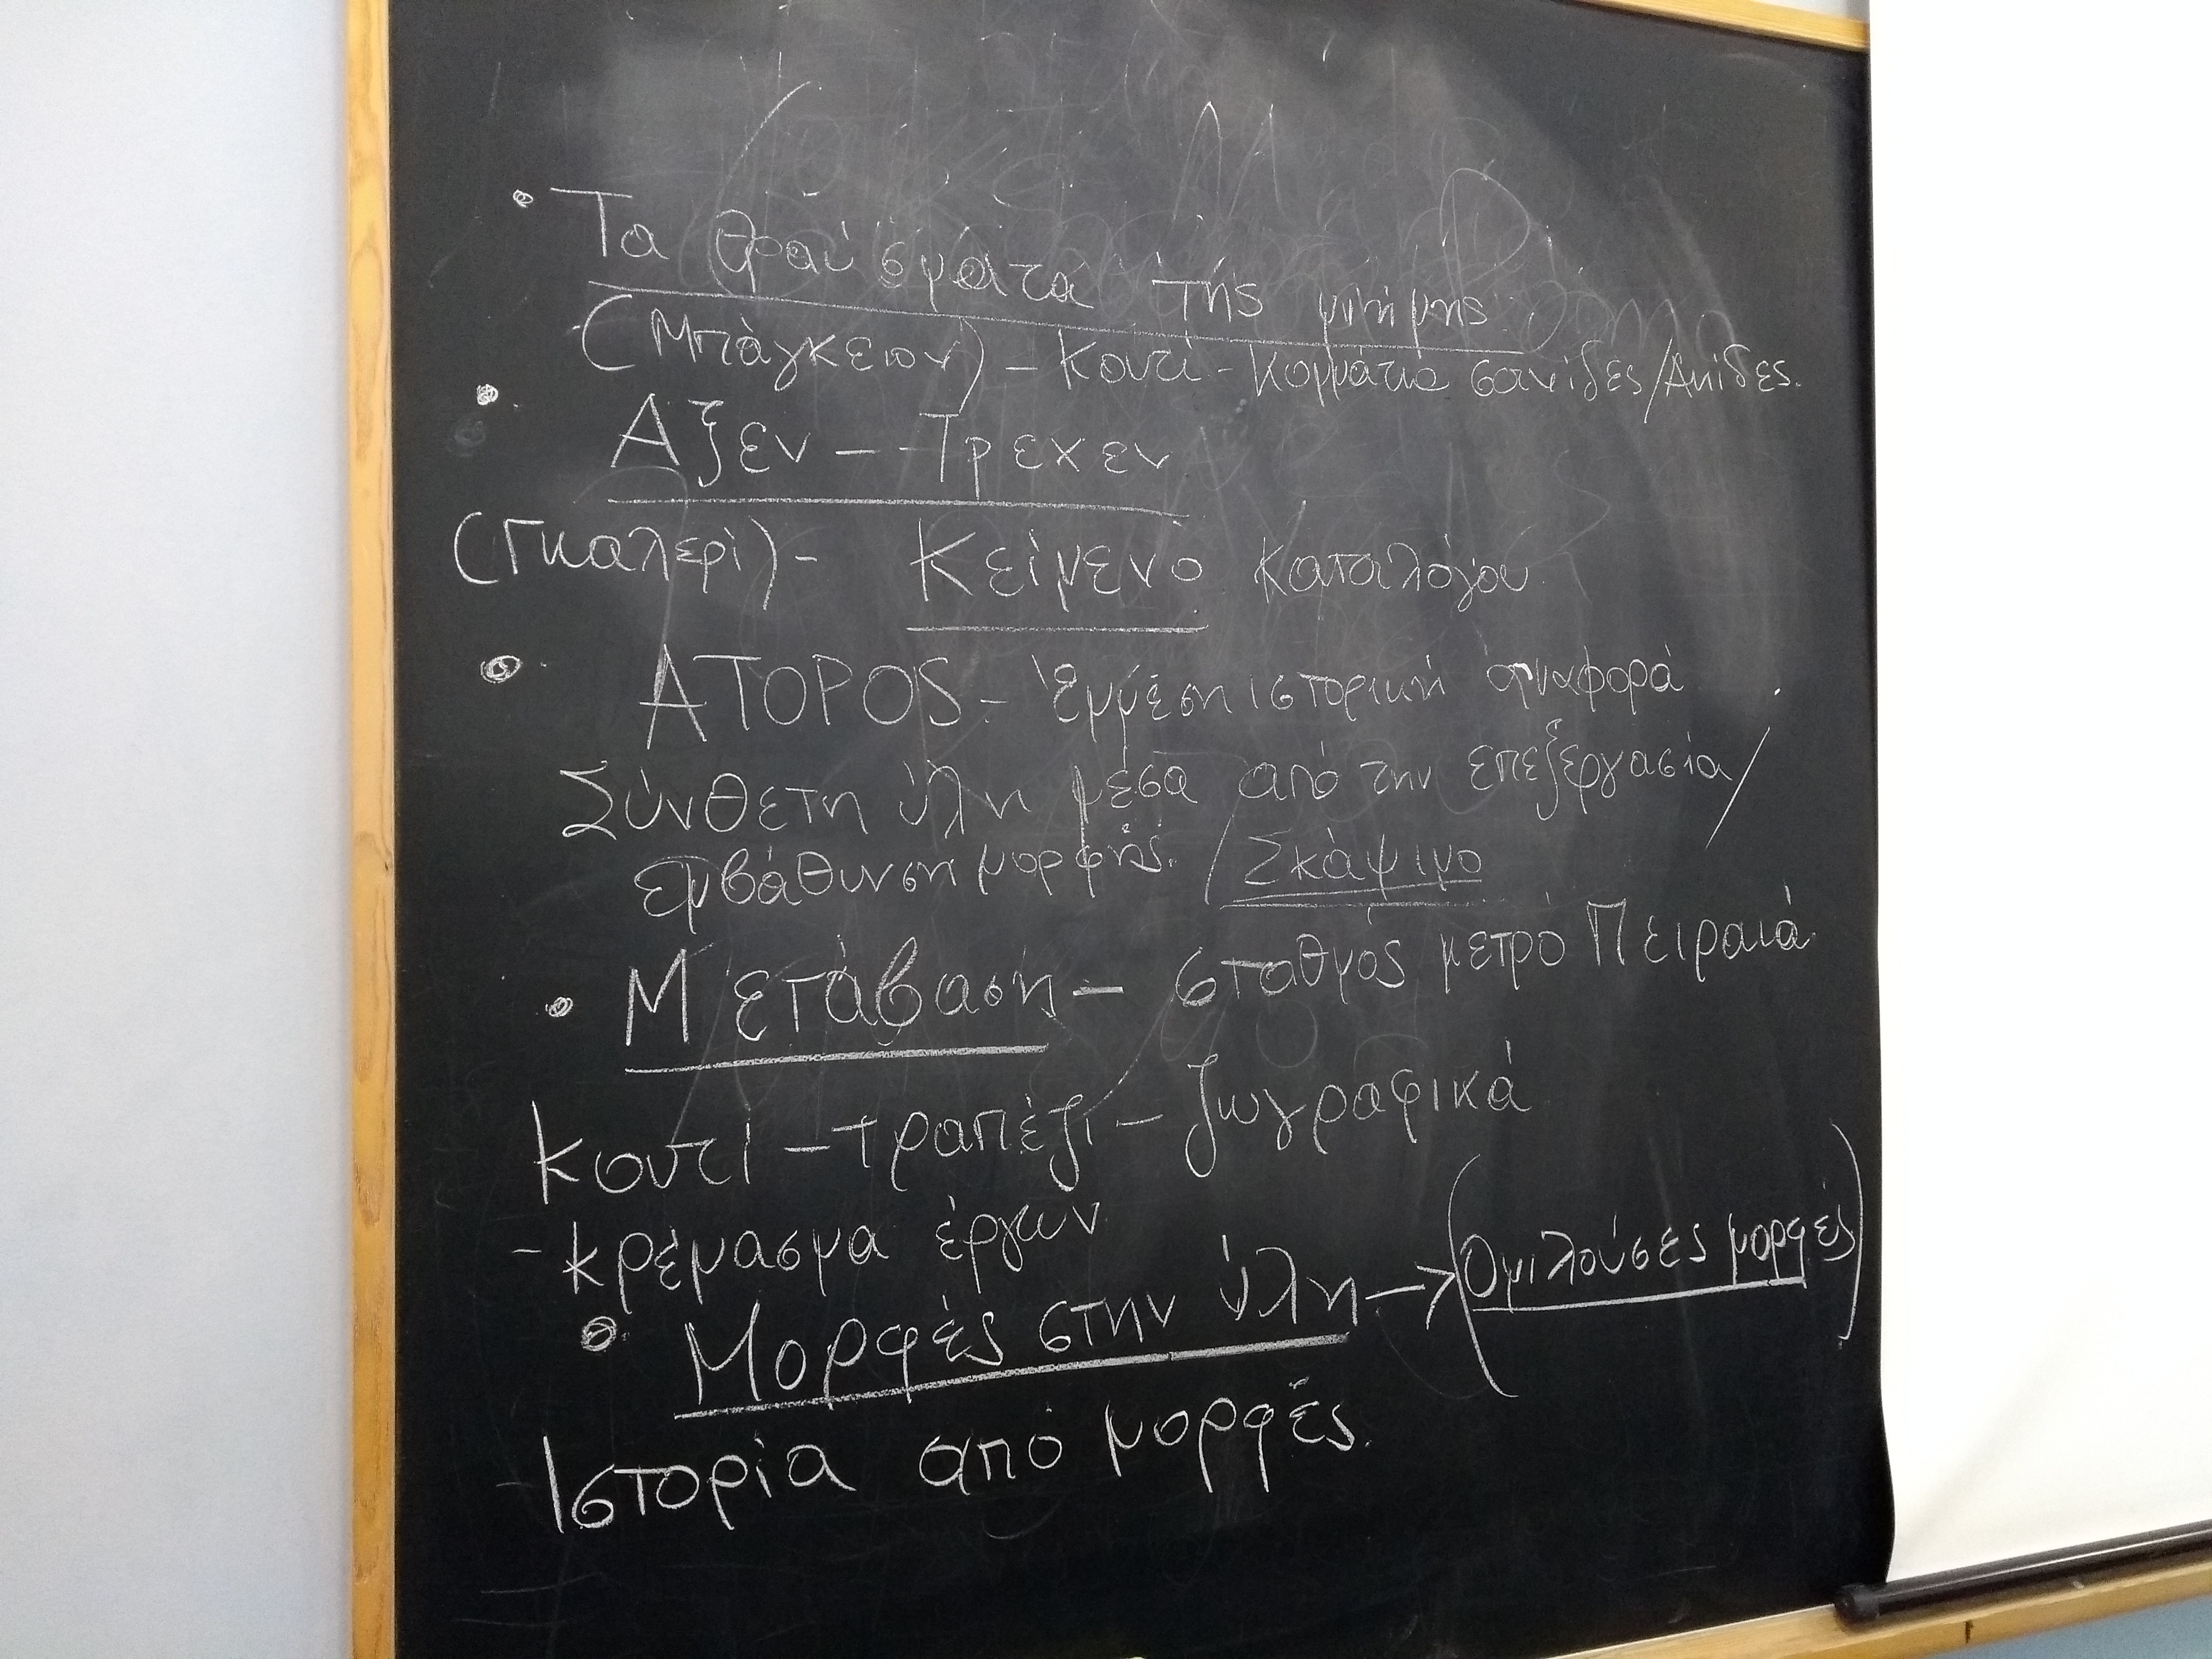 • Τα θραύσματα της μνήμης
(Μπάγκειον) – Κουτί – Κομμάτια σανίδες/Ακίδες.
• Αξεν – Τρεχεν
(Γκαλερί) – Κείμενο καταλόγου
• ATOPOS – Έμμεση ιστορική αναφορά
Σύνθετη ύλη μέσα από την επεξεργασία/
εμβάθυνση μορφής. / Σκάψιμο
• Μετάβαση – σταθμός μετρό Πειραιά
Κουτί – τραπέζι – ζωγραφικά
– κρέμασμα έργων
• Μορφές στην ύλη → (Ομιλούσες μορφές)
Ιστορία από μορφές.